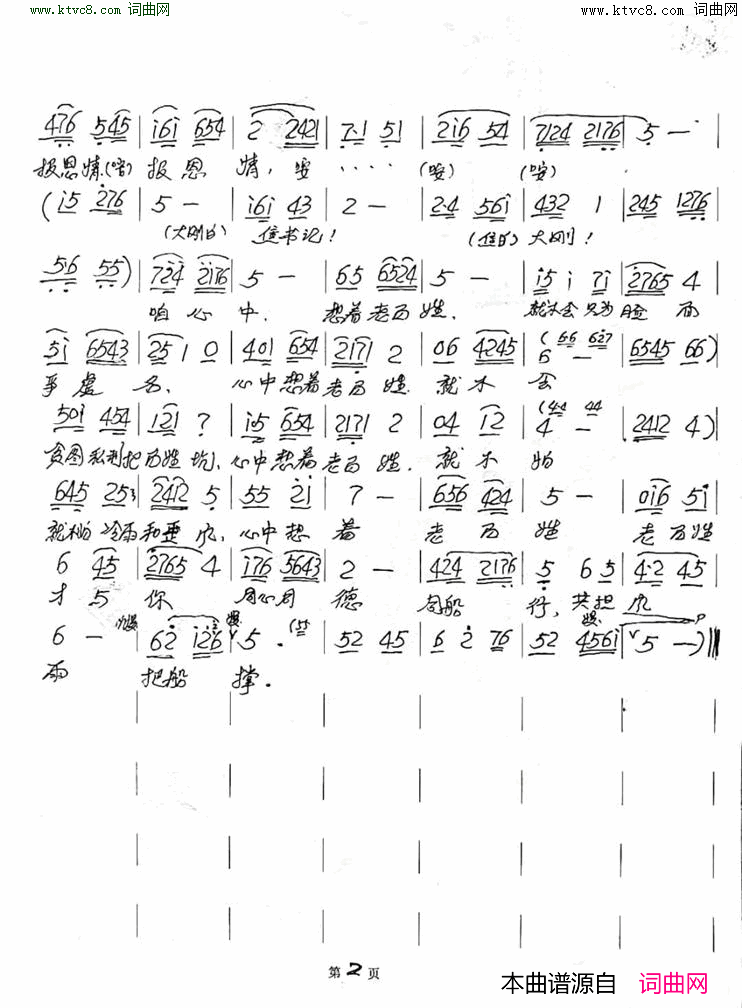 www.ktvc8.com 词曲网 www.ktvc8.com 词曲网
476 545 | i6i 654 | 2 2421 | 7·1 51 | 2i6 54 | 7124 2176 | 5 —
报恩情(嗒) 报恩 情, 安 · · · · (安) (安)
(i5 276 | 5 — | i6i 43 | 2 — | 2·4 56i | 432 1 | 245 1276
(大刚白) 任书记! (任白) 大刚!
5·6 55) | 724 2176 | 5 — | 65 6524 | 5 — | i5 i 7i | 2765 4
咱心 中. 想着老百姓. 就不会只为脸面
5i 6543 | 25 1 0 | 401 654 | 2171 2 | 06 4245 | (66 627 6 — | 6545 66)
争虚 名, 心中想着老百姓 就不 会
50i 454 | 121 ? | i5 654 | 2171 2 | 04 i2 | (44 44 4 — | 2412 4)
贪图私利把百姓坑, 心中想着老百姓. 就不 怕
645 253 | 2412 5 | 55 2i | 7 — | 656 424 | 5 — | 0i6 5i
就不怕冷雨和 风, 心中想 着 老百 姓 老百姓
6 45 | 2765 4 | i76 5643 | 2 — | 424 2176 | 5 6 5 | 4·2 45
才与 你 同心同 德 同船 行, 共担 风
6 — | 62 i2i6 | 5 · | 52 45 | 6 2 76 | 52 456i | 5 —)
雨 把船 撑.
第2页
本曲谱源自 词曲网